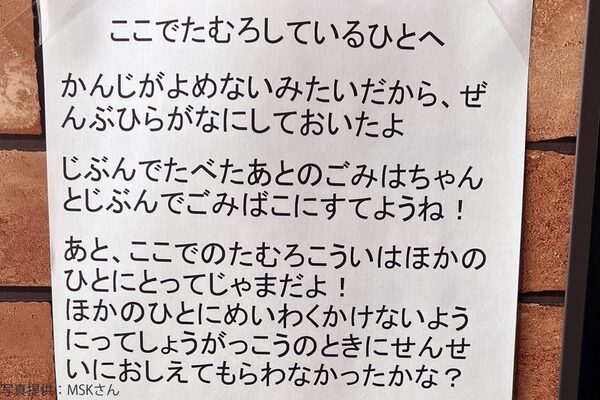 ここでたむろしているひとへ
かんじがよめないみたいだから、ぜ
んぶひらがなにしておいたよ
じぶんでたべたあとのごみはちゃん
とじぶんでごみばこにすてようね！
あと、ここでのたむろこういはほかの
ひとにとってじゃまだよ！
ほかのひとにめいわくかけないよう
にってしょうがっこうのときにせんせ
いにおしえてもらわなかったかな？
写真提供：MSKさん